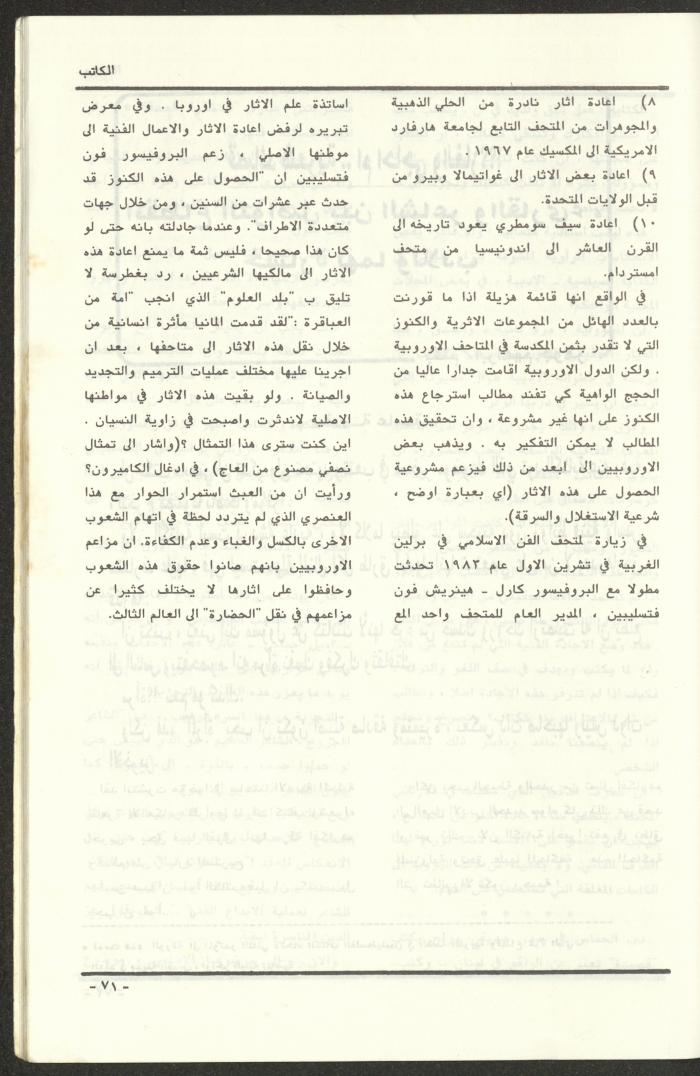 الكاتب
٨) اعادة اثار نادرة من الحلي الذهبية
والمجوهرات من المتحف التابع لجامعة هارفارد
الامريكية الى المكسيك عام ١٩٦٧ .
٩) اعادة بعض الاثار الى غواتيمالا وبيرو من
قبل الولايات المتحدة.
١٠) اعادة سيف سومطري يعود تاريخه الى
القرن العاشر الى اندونيسيا من متحف
امستردام.
في الواقع انها قائمة هزيلة اذا ما قورنت
بالعدد الهائل من المجموعات الاثرية والكنوز
التي لا تقدر بثمن المكدسة في المتاحف الاوروبية
. ولكن الدول الاوروبية اقامت جدارا عاليا من
الحجج الواهية كي تفند مطالب استرجاع هذه
الكنوز على انها غير مشروعة ، وان تحقيق هذه
المطالب لا يمكن التفكير به . ويذهب بعض
الاوروبيين الى ابعد من ذلك فيزعم مشروعية
الحصول على هذه الاثار (اي بعبارة اوضح ،
شرعية الاستغلال والسرقة).
في زيارة لمتحف الفن الاسلامي في برلين
الغربية في تشرين الاول عام ١٩٨٣ تحدثت
مطولا مع البروفيسور كارل ـ هينريش فون
فتسليبين ، المدير العام للمتحف واحد المع
اساتذة علم الاثار في اوروبا . وفي معرض
تبريره لرفض اعادة الاثار والاعمال الفنية الى
موطنها الاصلي ، زعم البروفيسور فون
فتسليبين ان "الحصول على هذه الكنوز قد
حدث عبر عشرات من السنين ، ومن خلال جهات
متعددة الاطراف". وعندما جادلته بانه حتى لو
كان هذا صحيحا ، فليس ثمة ما يمنع اعادة هذه
الاثار الى مالكيها الشرعيين ، رد بغطرسة لا
تليق ب "بلد العلوم" الذي انجب "امة من
العباقرة :"لقد قدمت المانيا مأثرة انسانية من
خلال نقل هذه الاثار الى متاحفها ، بعد ان
اجرينا عليها مختلف عمليات الترميم والتجديد
والصيانة . ولو بقيت هذه الاثار في مواطنها
الاصلية لاندثرت واصبحت في زاوية النسيان .
اين كنت سترى هذا التمثال ؟(واشار الى تمثال
نصفي مصنوع من العاج) ، في ادغال الكاميرون؟
ورأيت ان من العبث استمرار الحوار مع هذا
العنصري الذي لم يتردد لحظة في اتهام الشعوب
الاخرى بالكسل والغباء وعدم الكفاءة. ان مزاعم
الاوروبيين بانهم صانوا حقوق هذه الشعوب
وحافظوا على اثارها لا يختلف كثيرا عن
مزاعمهم في نقل "الحضارة" الى العالم الثالث.
- ٧١ -